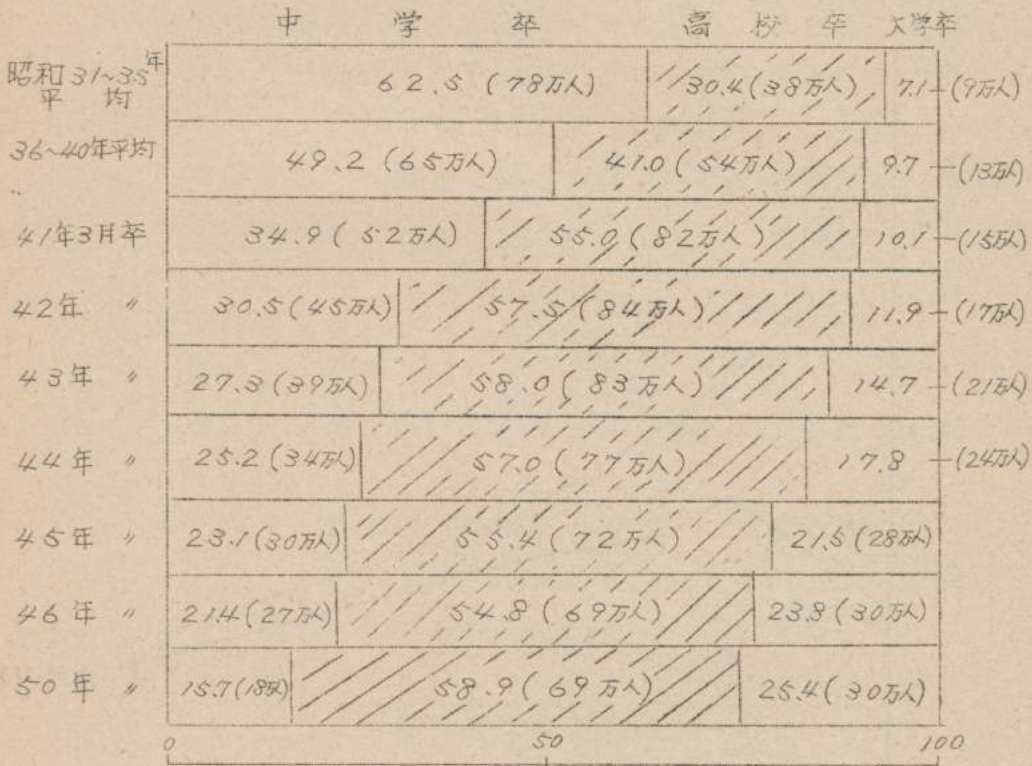 中学卒 高校卒 大学卒
昭和31~35年平均 62.5(78万人) 30.4(38万人) 7.1 (9万人)
36~40年平均 49.2(65万人) 41.0(54万人) 9.7 (13万人)
41年3月卒 34.9(52万人) 55.0(82万人) 10.1 (15万人)
42年 〃 30.5(45万人) 57.5(84万人) 11.9 (17万人)
43年 〃 27.3(39万人) 58.0(83万人) 14.7 (21万人)
44年 〃 25.2(34万人) 57.0(77万人) 17.8 (24万人)
45年 〃 23.1(30万人) 55.4(72万人) 21.5(28万人)
46年 〃 21.4(27万人) 54.8(69万人) 23.8(30万人)
50年 〃 15.7(18万人) 58.9(69万人) 25.4(30万人)
0 50 100